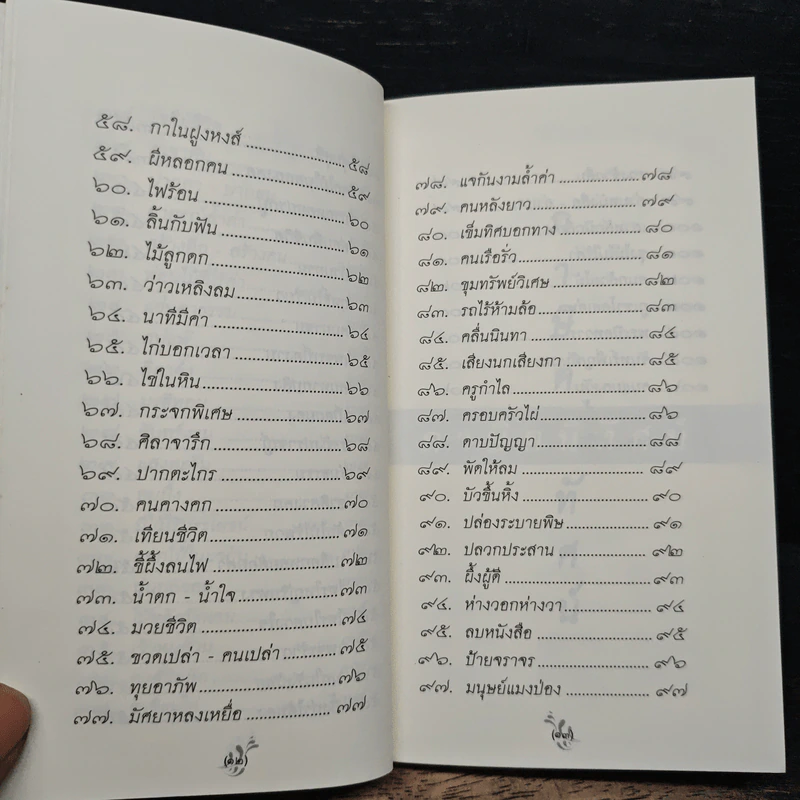 ๕๘. กาในฝูงหงส์ ........................ ๕๘
๕๙. ผีหลอกคน ........................ ๕๙
๖๐. ไฟร้อน ........................ ๖๐
๖๑. ลิ้นกับฟัน ........................ ๖๑
๖๒. ไม้ลูกดก ........................ ๖๒
๖๓. ว่าวเหลิงลม ........................ ๖๓
๖๔. นาทีมีค่า ........................ ๖๔
๖๕. ไก่บอกเวลา ........................ ๖๕
๖๖. ไข่ในหิน ........................ ๖๖
๖๗. กระจกพิเศษ ........................ ๖๗
๖๘. ศิลาจารึก ........................ ๖๘
๖๙. ปากตะไกร ........................ ๖๙
๗๐. คนคางคก ........................ ๗๐
๗๑. เทียนชีวิต ........................ ๗๑
๗๒. ขี้ผึ้งลนไฟ ........................ ๗๒
๗๓. น้ำตก - น้ำใจ ........................ ๗๓
๗๔. มวยชีวิต ........................ ๗๔
๗๕. ขวดเปล่า - คนเปล่า ........................ ๗๕
๗๖. ทุยอาภัพ ........................ ๗๖
๗๗. มัศยาหลงเหยื่อ ........................ ๗๗
(๑๒)
๗๘. แจกันงามล้ำค่า ........................ ๗๘
๗๙. คนหลังยาว ........................ ๗๙
๘๐. เข็มทิศบอกทาง ........................ ๘๐
๘๑. คนเรือรั่ว ........................ ๘๑
๘๒. ขุมทรัพย์วิเศษ ........................ ๘๒
๘๓. รถไร้ห้ามล้อ ........................ ๘๓
๘๔. คลื่นนินทา ........................ ๘๔
๘๕. เสียงนกเสียงกา ........................ ๘๕
๘๖. ครูกำไล ........................ ๘๖
๘๗. ครอบครัวไผ่ ........................ ๘๖
๘๘. ดาบปัญญา ........................ ๘๘
๘๙. พัดให้ลม ........................ ๘๙
๙๐. บัวขึ้นหิ้ง ........................ ๙๐
๙๑. ปล่องระบายพิษ ........................ ๙๑
๙๒. ปลวกประสาน ........................ ๙๒
๙๓. ผึ้งผู้ดี ........................ ๙๓
๙๔. ห่างวอกห่างวา ........................ ๙๔
๙๕. ลบหนังสือ ........................ ๙๕
๙๖. ป้ายจราจร ........................ ๙๖
๙๗. มนุษย์แมงป่อง ........................ ๙๗
(๑๓)